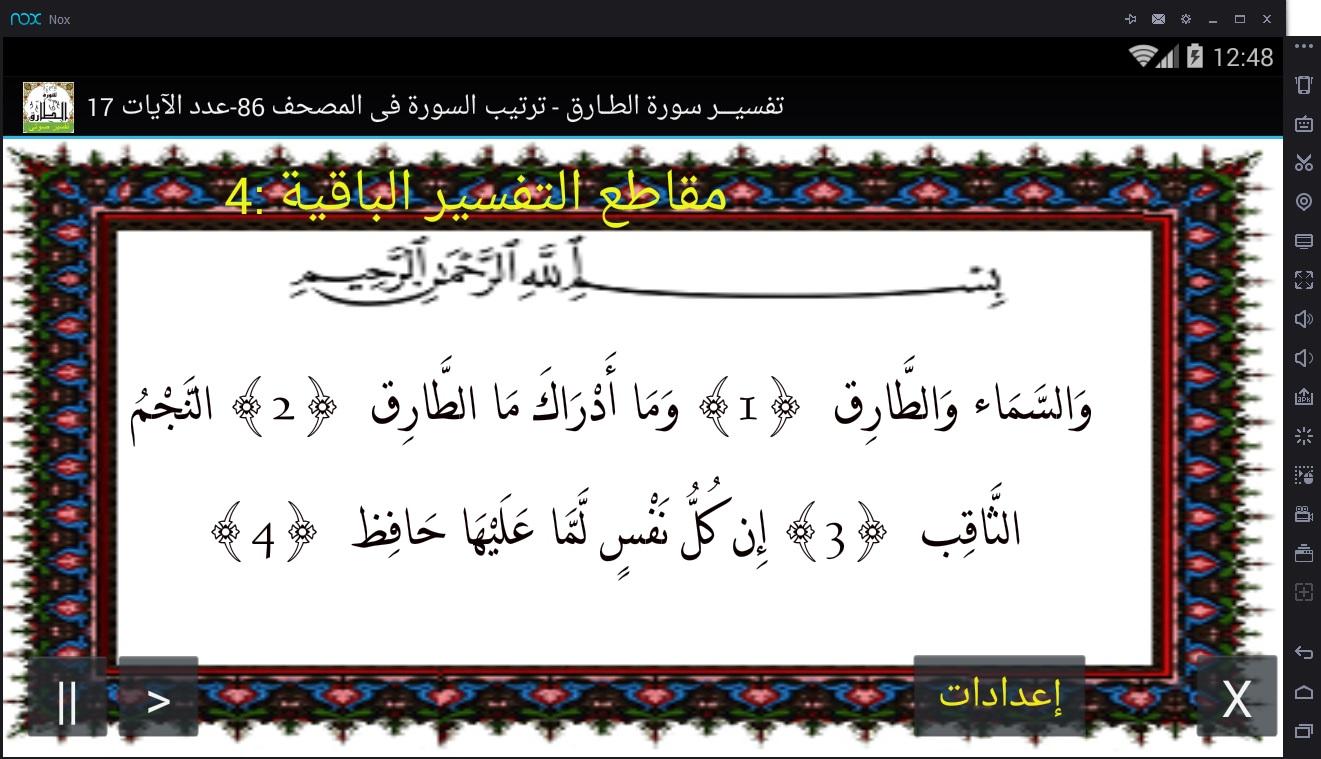 nox Nox
12:48
تفسيــر سورة الطـارق - ترتيب السورة فى المصحف 86-عدد الآيات 17
مقاطع التفسير الباقية :4
بِسْمِ ٱللَّهِ ٱلرَّحْمَٰنِ ٱلرَّحِيمِ
وَالسَّمَاء وَالطَّارِق ﴿1﴾ وَمَا أَدْرَاكَ مَا الطَّارِق ﴿2﴾ النَّجْمُ
الثَّاقِب ﴿3﴾ إِن كُلُّ نَفْسٍ لَّمَّا عَلَيْهَا حَافِظ ﴿4﴾
|| > إعدادات X